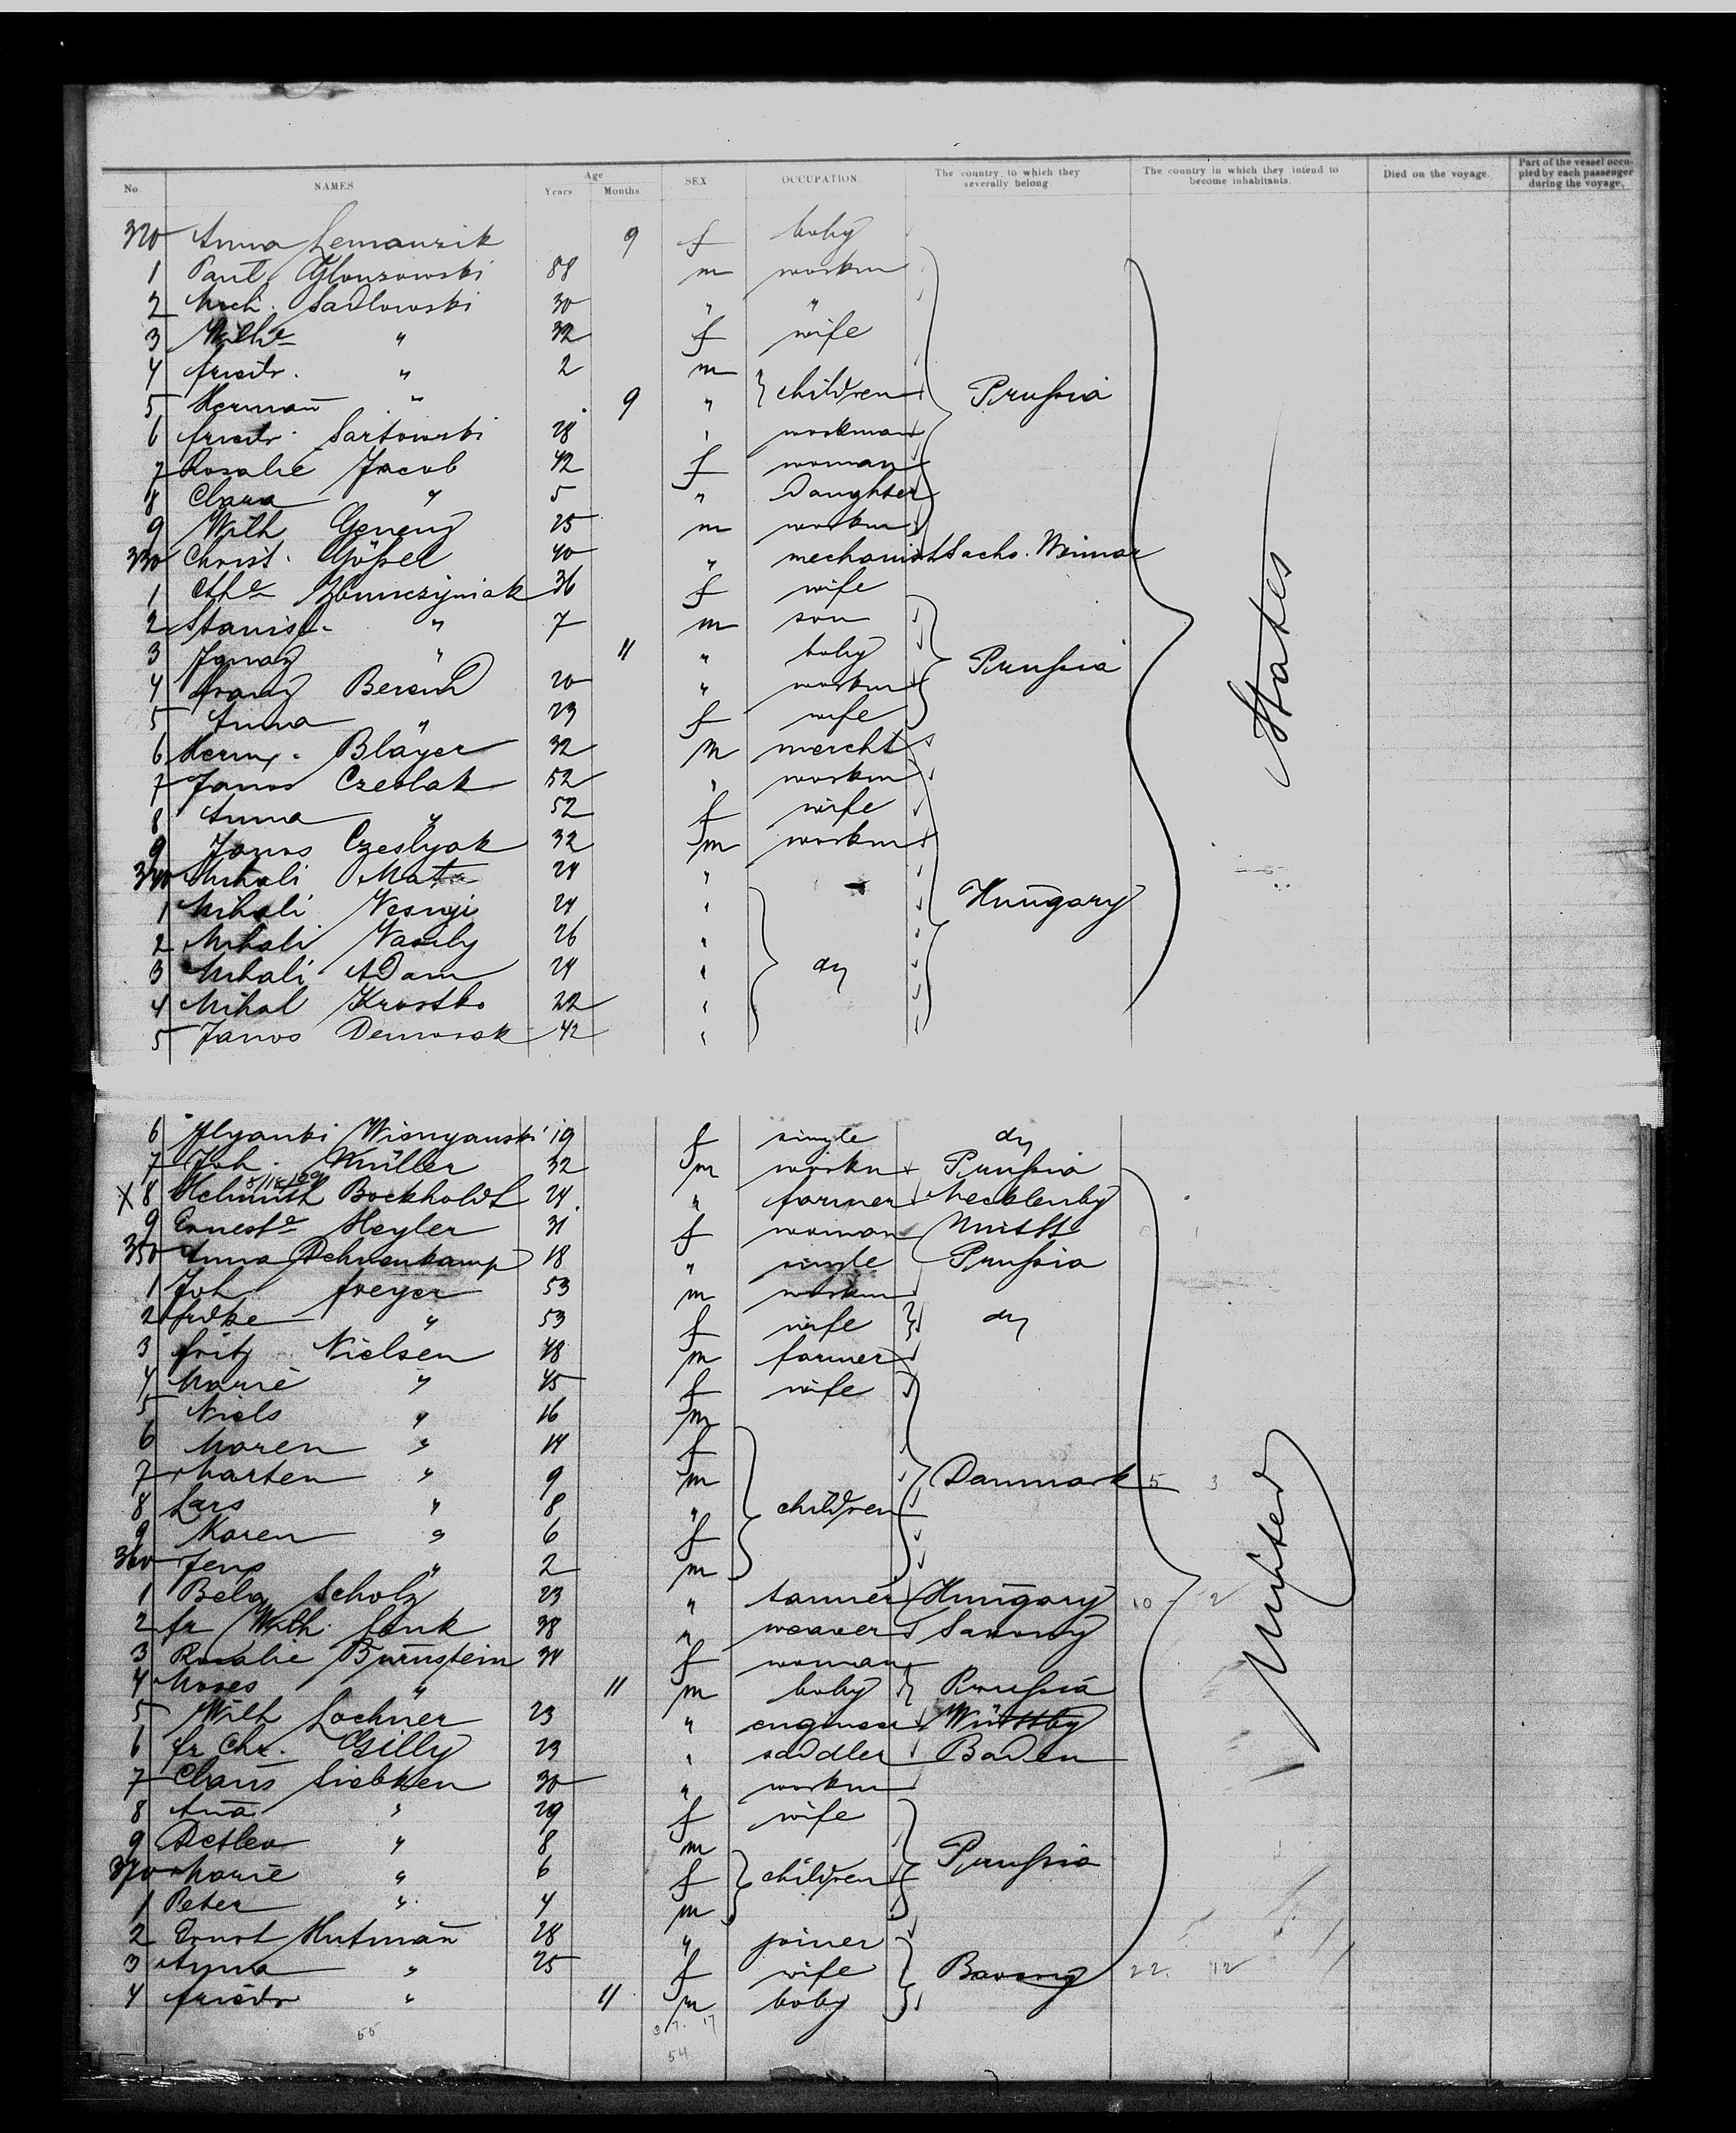 No. NAMES Age Years Months SEX OCCUPATION. The country, to which they severally belong The country in which they intend to become inhabitants. Died on the voyage. Part of the vessel occupied by each passenger during the voyage.
320 Anna Lemanzik 9 f baby
1 Paul 88 m workm
2 Mich. Sadlowski 30 " "
3 Wilhe " 32 f wife
4 friedr. " 2 m
5 Hermañ " 9 " children Prussia
6 friedr. Sartowski 28 " workman
7 Rosalie Jacob 42 f woman
8 Clara " 5 " Daughter
9 Wilh 25 m workm
330 Christ. Göpel 40 " mechanist Sachs. Weimar
1 Cthe 36 f wife
2 Stanisl. " 7 m son
3 Ignaz " 11 " baby Prussia
4 franz 20 " workm
5 Anna " 23 f wife
6 Herm. Bläyer 32 m mercht
7 Janos Czeslak 52 " workm
8 Anna " 52 f wife
9 Janos Czeslyak 32 m workm
340 Mihali Mata 24 "
1 Mihali 24 " Hungary
2 Mihali Vasily 26 "
3 Mihali Adam 24 " do
4 Mihal Krostko 22 "
5 Janos 42 "
States
6 Wisnyanski 19 f single do
7 Joh. Müller 32 m workm Prussia
X 8 Helmuth Bockholdt 24 " farmer Mecklenbg
9 Erneste Heyler 31 f woman
350 Anna 18 " single Prussia
1 Joh freyer 53 m workm
2 " 53 f wife do
3 fritz Nielsen 48 m farmer
4 Marie " 45 f wife
5 Niels " 16 m
6 Maren " 14 f
7 Marten " 9 m Danmark 5 3
8 Lars " 8 " children
9 Karen " 6 f
360 Jens " 2 m
1 Bela Scholz 23 " tanner Hungary 10 2
2 fr Wilh. Lenk 38 " weaver Saxony
3 Rosalie 34 f woman
4 Moses " 11 m baby Prussia
5 Wilh Lochner 23 " engineer Württbg
6 fr Chr. Gilly 23 " saddler Baden
7 Claus Siebken 30 " workm
8 Aña " 29 f wife
9 Detlev " 8 m
370 Marie " 6 f children Prussia
1 Peter " 4 m
2 Ernst Hutmañ 28 " joiner
3 Anna " 25 f wife 22. 12
4 friedr " 11 m baby
United
54